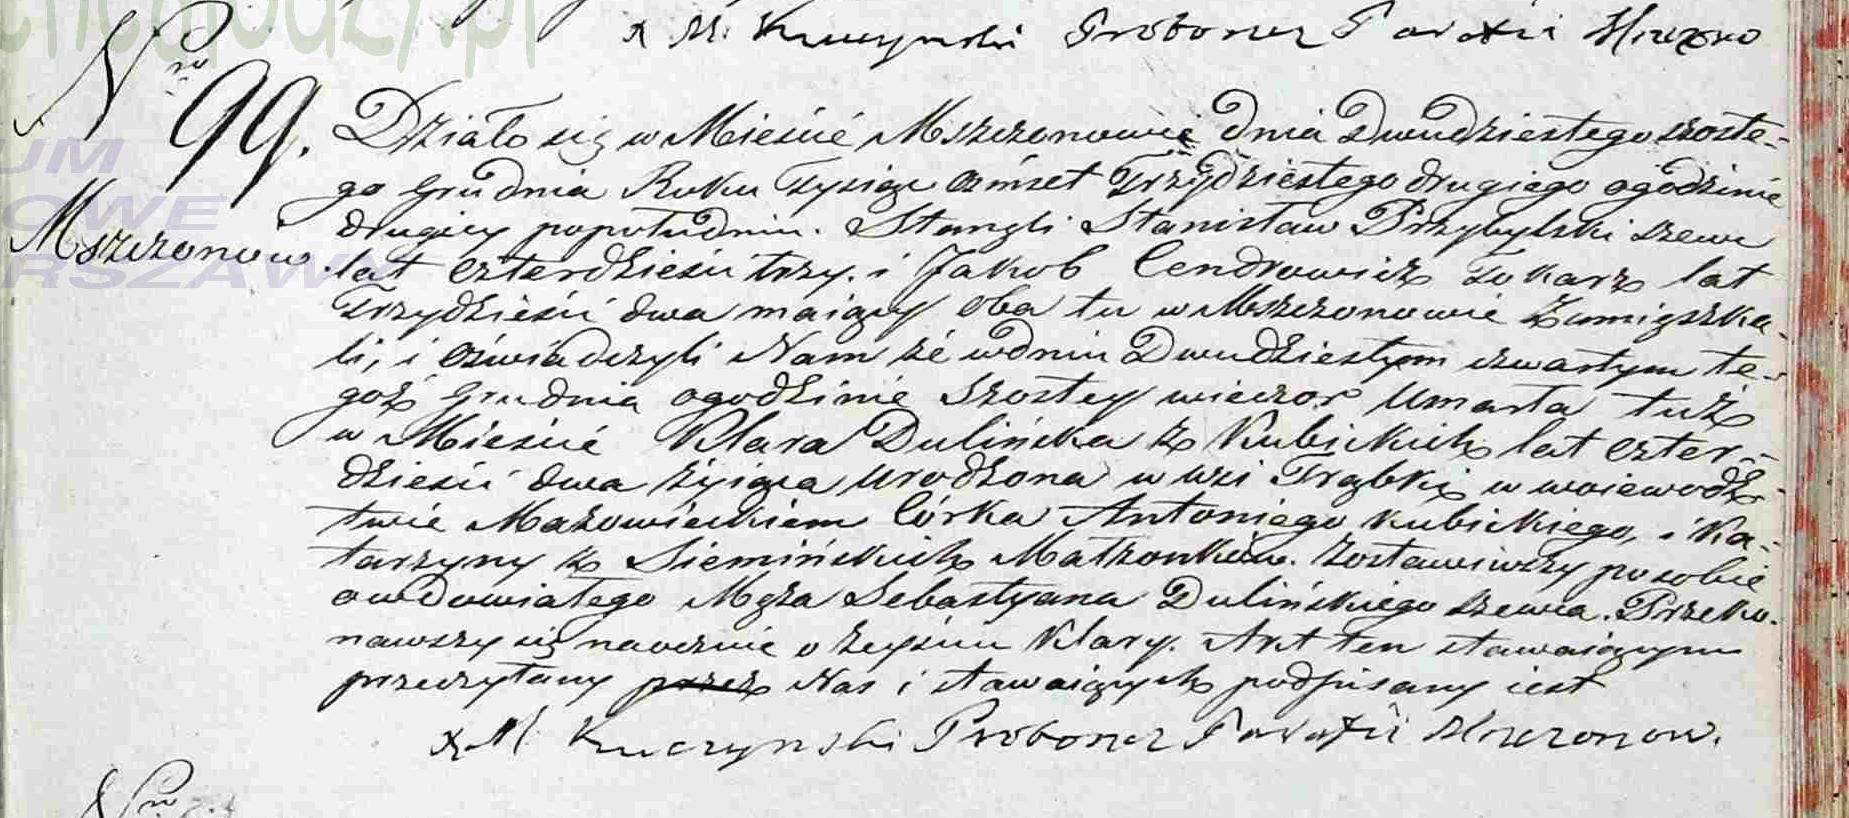 X M. Kuczynski Proboszcz Parafii Mszczono
Nro 99.
Mszczonów.
Działo się w Mieście Mszczonowie dnia Dwudziestego szoste-
go Grudnia Roku Tysiąc Ośmset Trzydziestego drugiego o godzinie
drugiey popołudniu. Stanęli Stanisław Przybylski szewc
lat czterdzieści trzy. i Jakob Cendrowicz Tokarz lat
Trzydzieści dwa maiący oba tu w Mszczonowie Zamięszka-
li, i oświadczyli Nam że w dniu Dwudziestym czwartym te-
goż Grudnia o godzinie szostey wieczor umarła tuż
w Mieście Klara Dulińska z Kubickich lat czter-
dzieści dwa żyiąca urodzona w wsi Trąbki w woiewodz-
twie Mazowieckiem Córka Antoniego Kubickiego, i Ka-
tarzyny z Siemińskich Małżonków. Zostawiwszy po sobie
owdowiałego Męża Sebastyana Dulińskiego szewca. Przeko-
nawszy się naocznie o zeyściu Klary. Akt ten stawaiącym
przeczytany przez Nas i stawaiących podpisany iest
X M. Kuczynski Proboszcz Parafii Mszczonow.
Nro